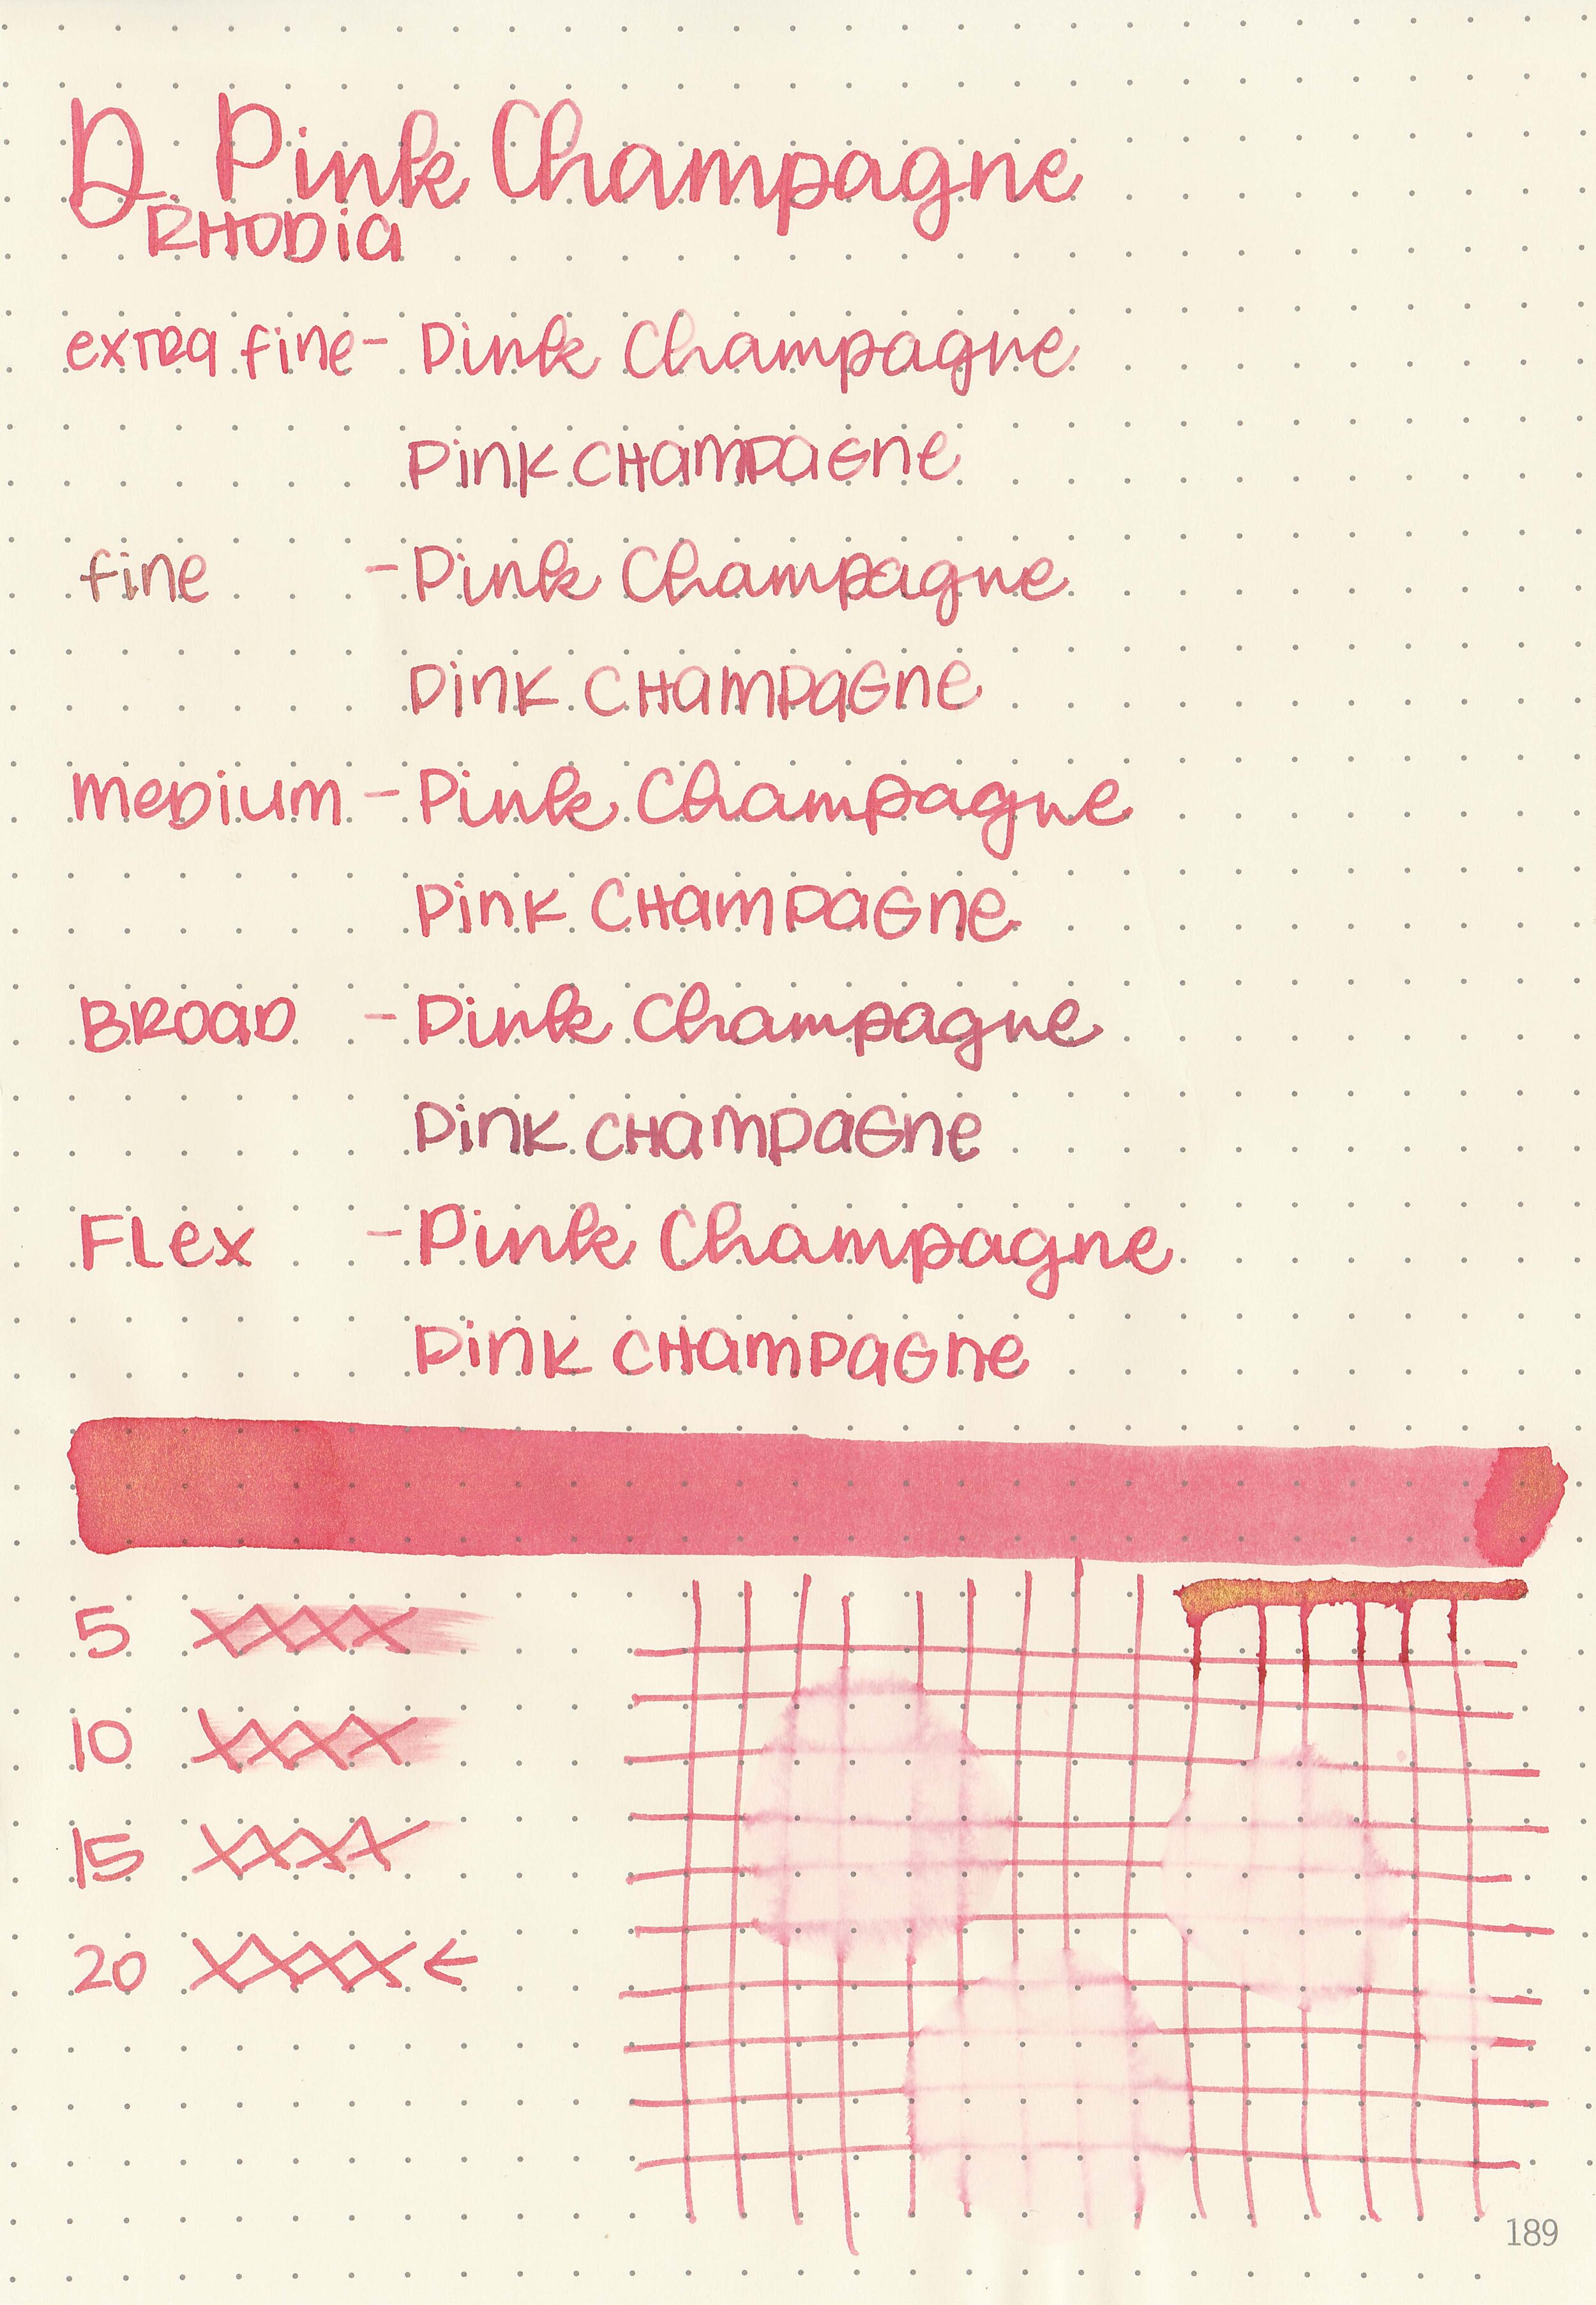 D. Pink Champagne
RHODia
extRa fine - Pink Champagne
Pink CHamPaGne
fine - Pink Champagne
Pink CHamPaGne
meDium - Pink Champagne
Pink CHamPaGne
BROaD - Pink Champagne
Pink CHamPaGne
FLex - Pink Champagne
Pink CHamPaGne
5 XXXX
10 XXXX
15 XXXX
20 XXXX ←
189